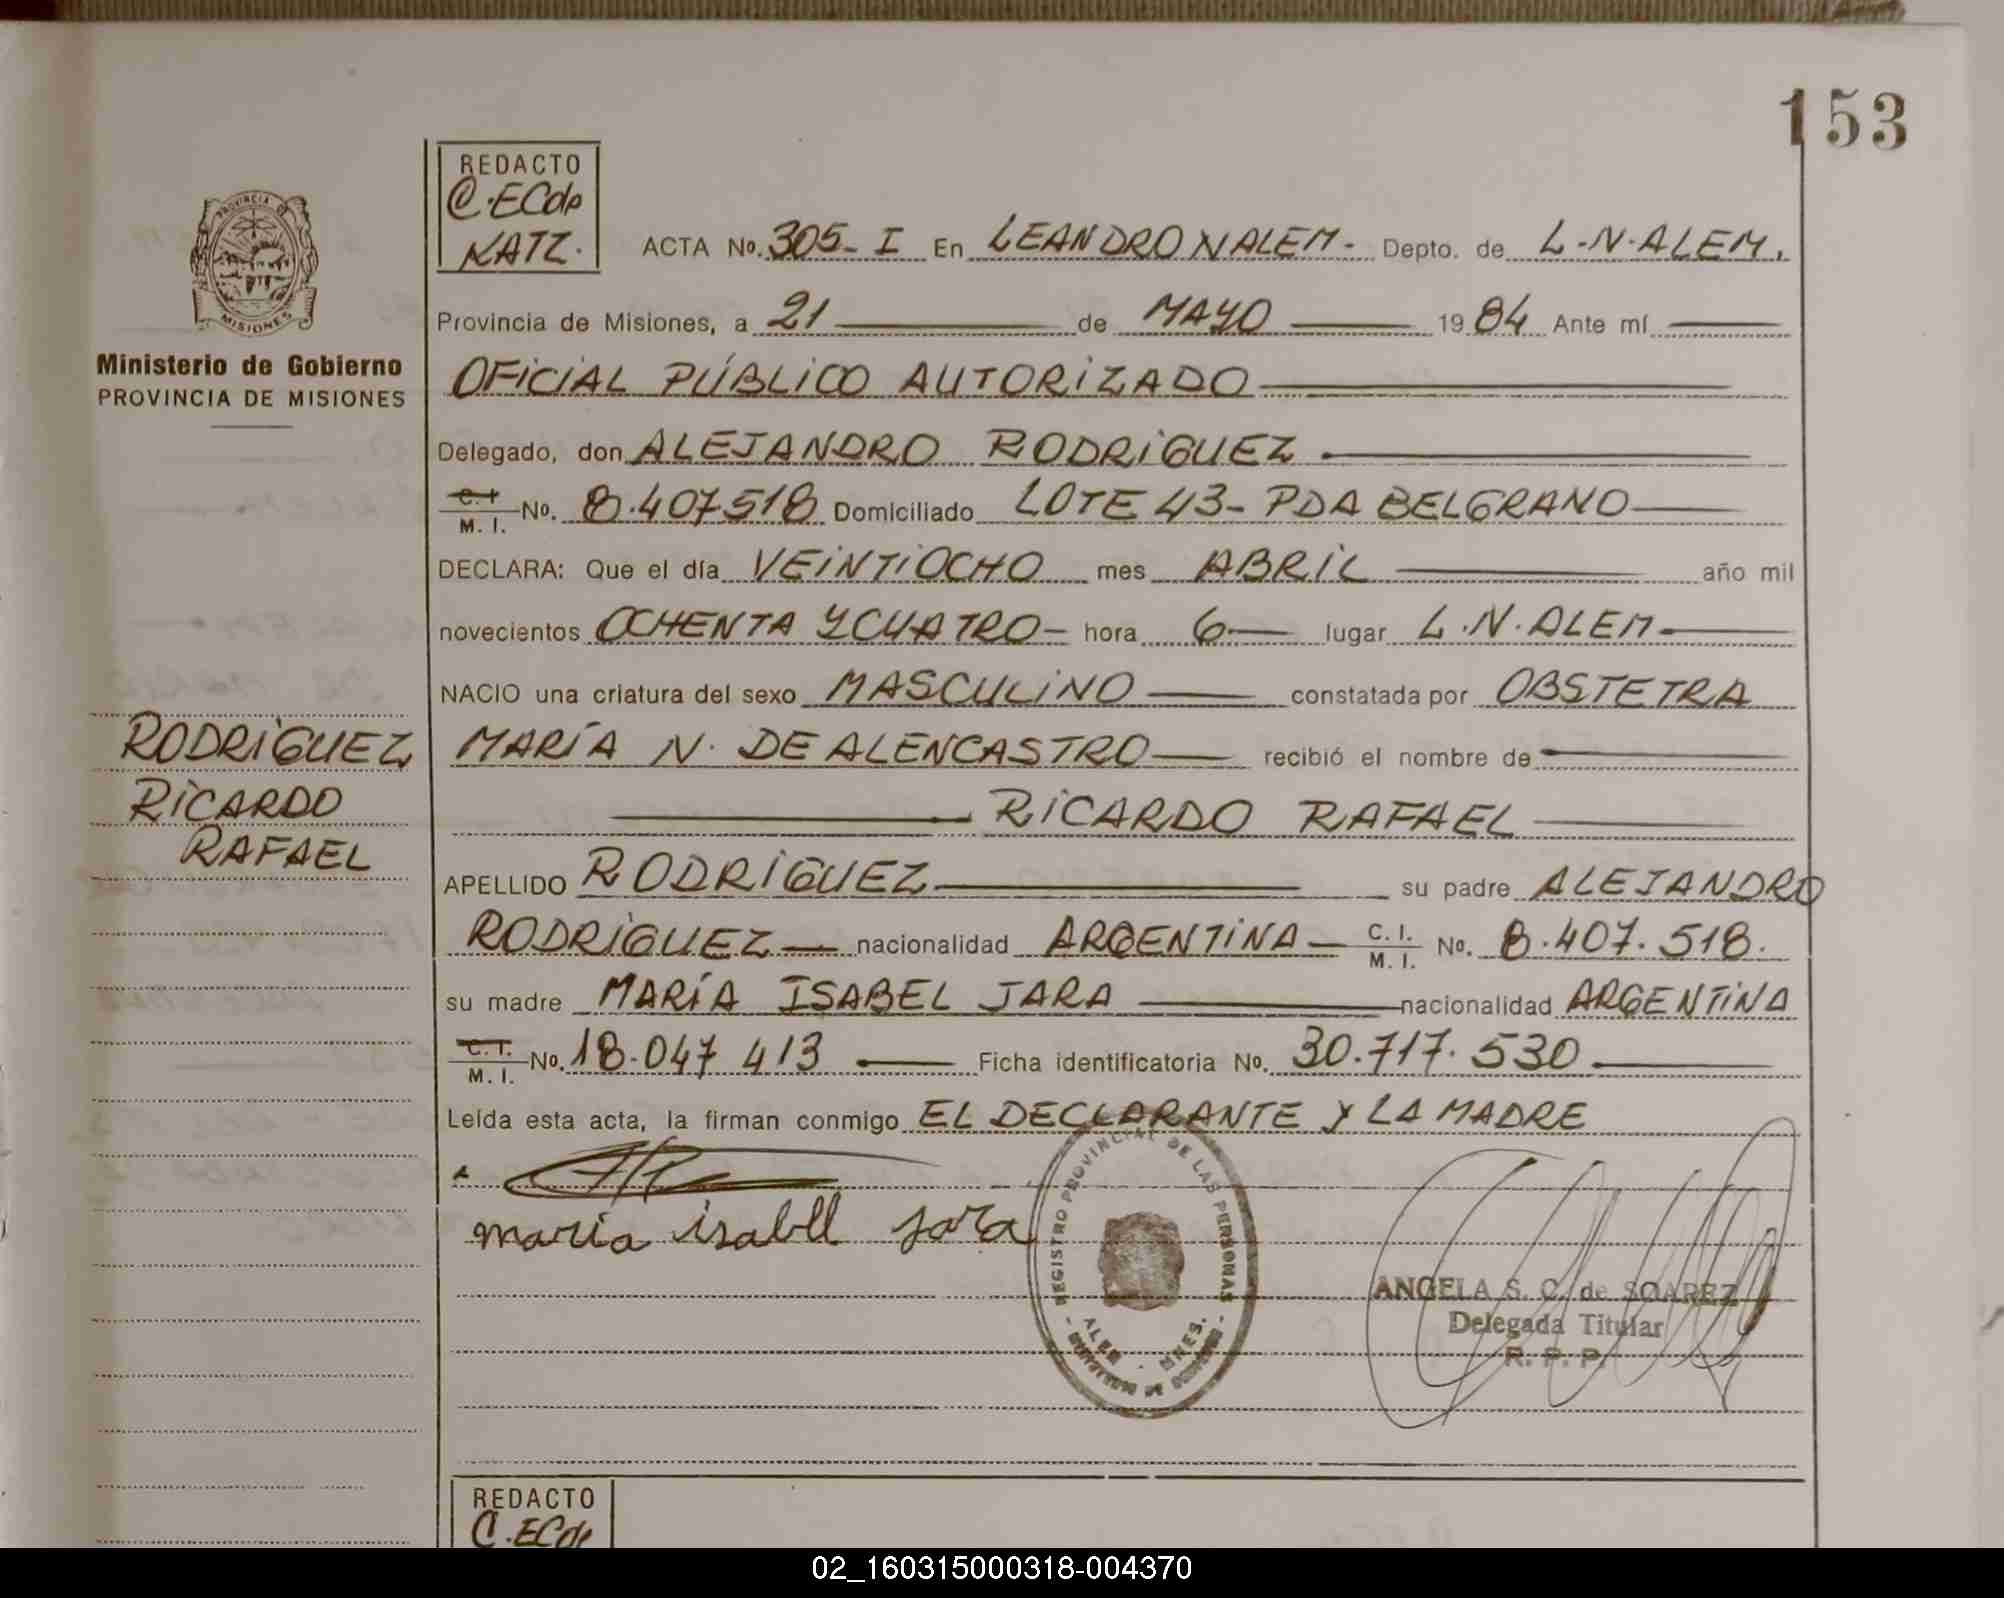 153
REDACTO
C.ECde
KATZ.
PROVINCIA DE
MISIONES
Ministerio de Gobierno
PROVINCIA DE MISIONES
ACTA No. 305- I En LEANDRO N ALEM- Depto. de L.N.ALEM.
Provincia de Misiones, a 21 de MAYO 1984 Ante mí
OFICIAL PÚBLICO AUTORIZADO
Delegado, don ALEJANDRO RODRIGUEZ
C. I. M. I. No. 8.407518 Domiciliado LOTE 43- PDA BELGRANO
DECLARA: Que el día VEINTIOCHO mes ABRIL año mil
novecientos OCHENTA Y CUATRO- hora 6 lugar L.N.ALEM
NACIO una criatura del sexo MASCULINO constatada por OBSTETRA
MARÍA N. DE ALENCASTRO recibió el nombre de
RICARDO RAFAEL
APELLIDO RODRIGUEZ su padre ALEJANDRO
RODRIGUEZ nacionalidad ARGENTINA C. I. M. I. No. 8.407.518.
su madre MARÍA ISABEL JARA nacionalidad ARGENTINA
C. I. M. I. No. 18.047 413 Ficha identificatoria No. 30.717.530
Leída esta acta, la firman conmigo EL DECLARANTE Y LA MADRE
RODRIGUEZ
RICARDO
RAFAEL
maria isabel jara
REGISTRO PROVINCIAL DE LAS PERSONAS
ALEM - MNES.
ANGELA S. C. de SOAREZ
Delegada Titular
R. P. P.
REDACTO
C.ECde
02_160315000318-004370